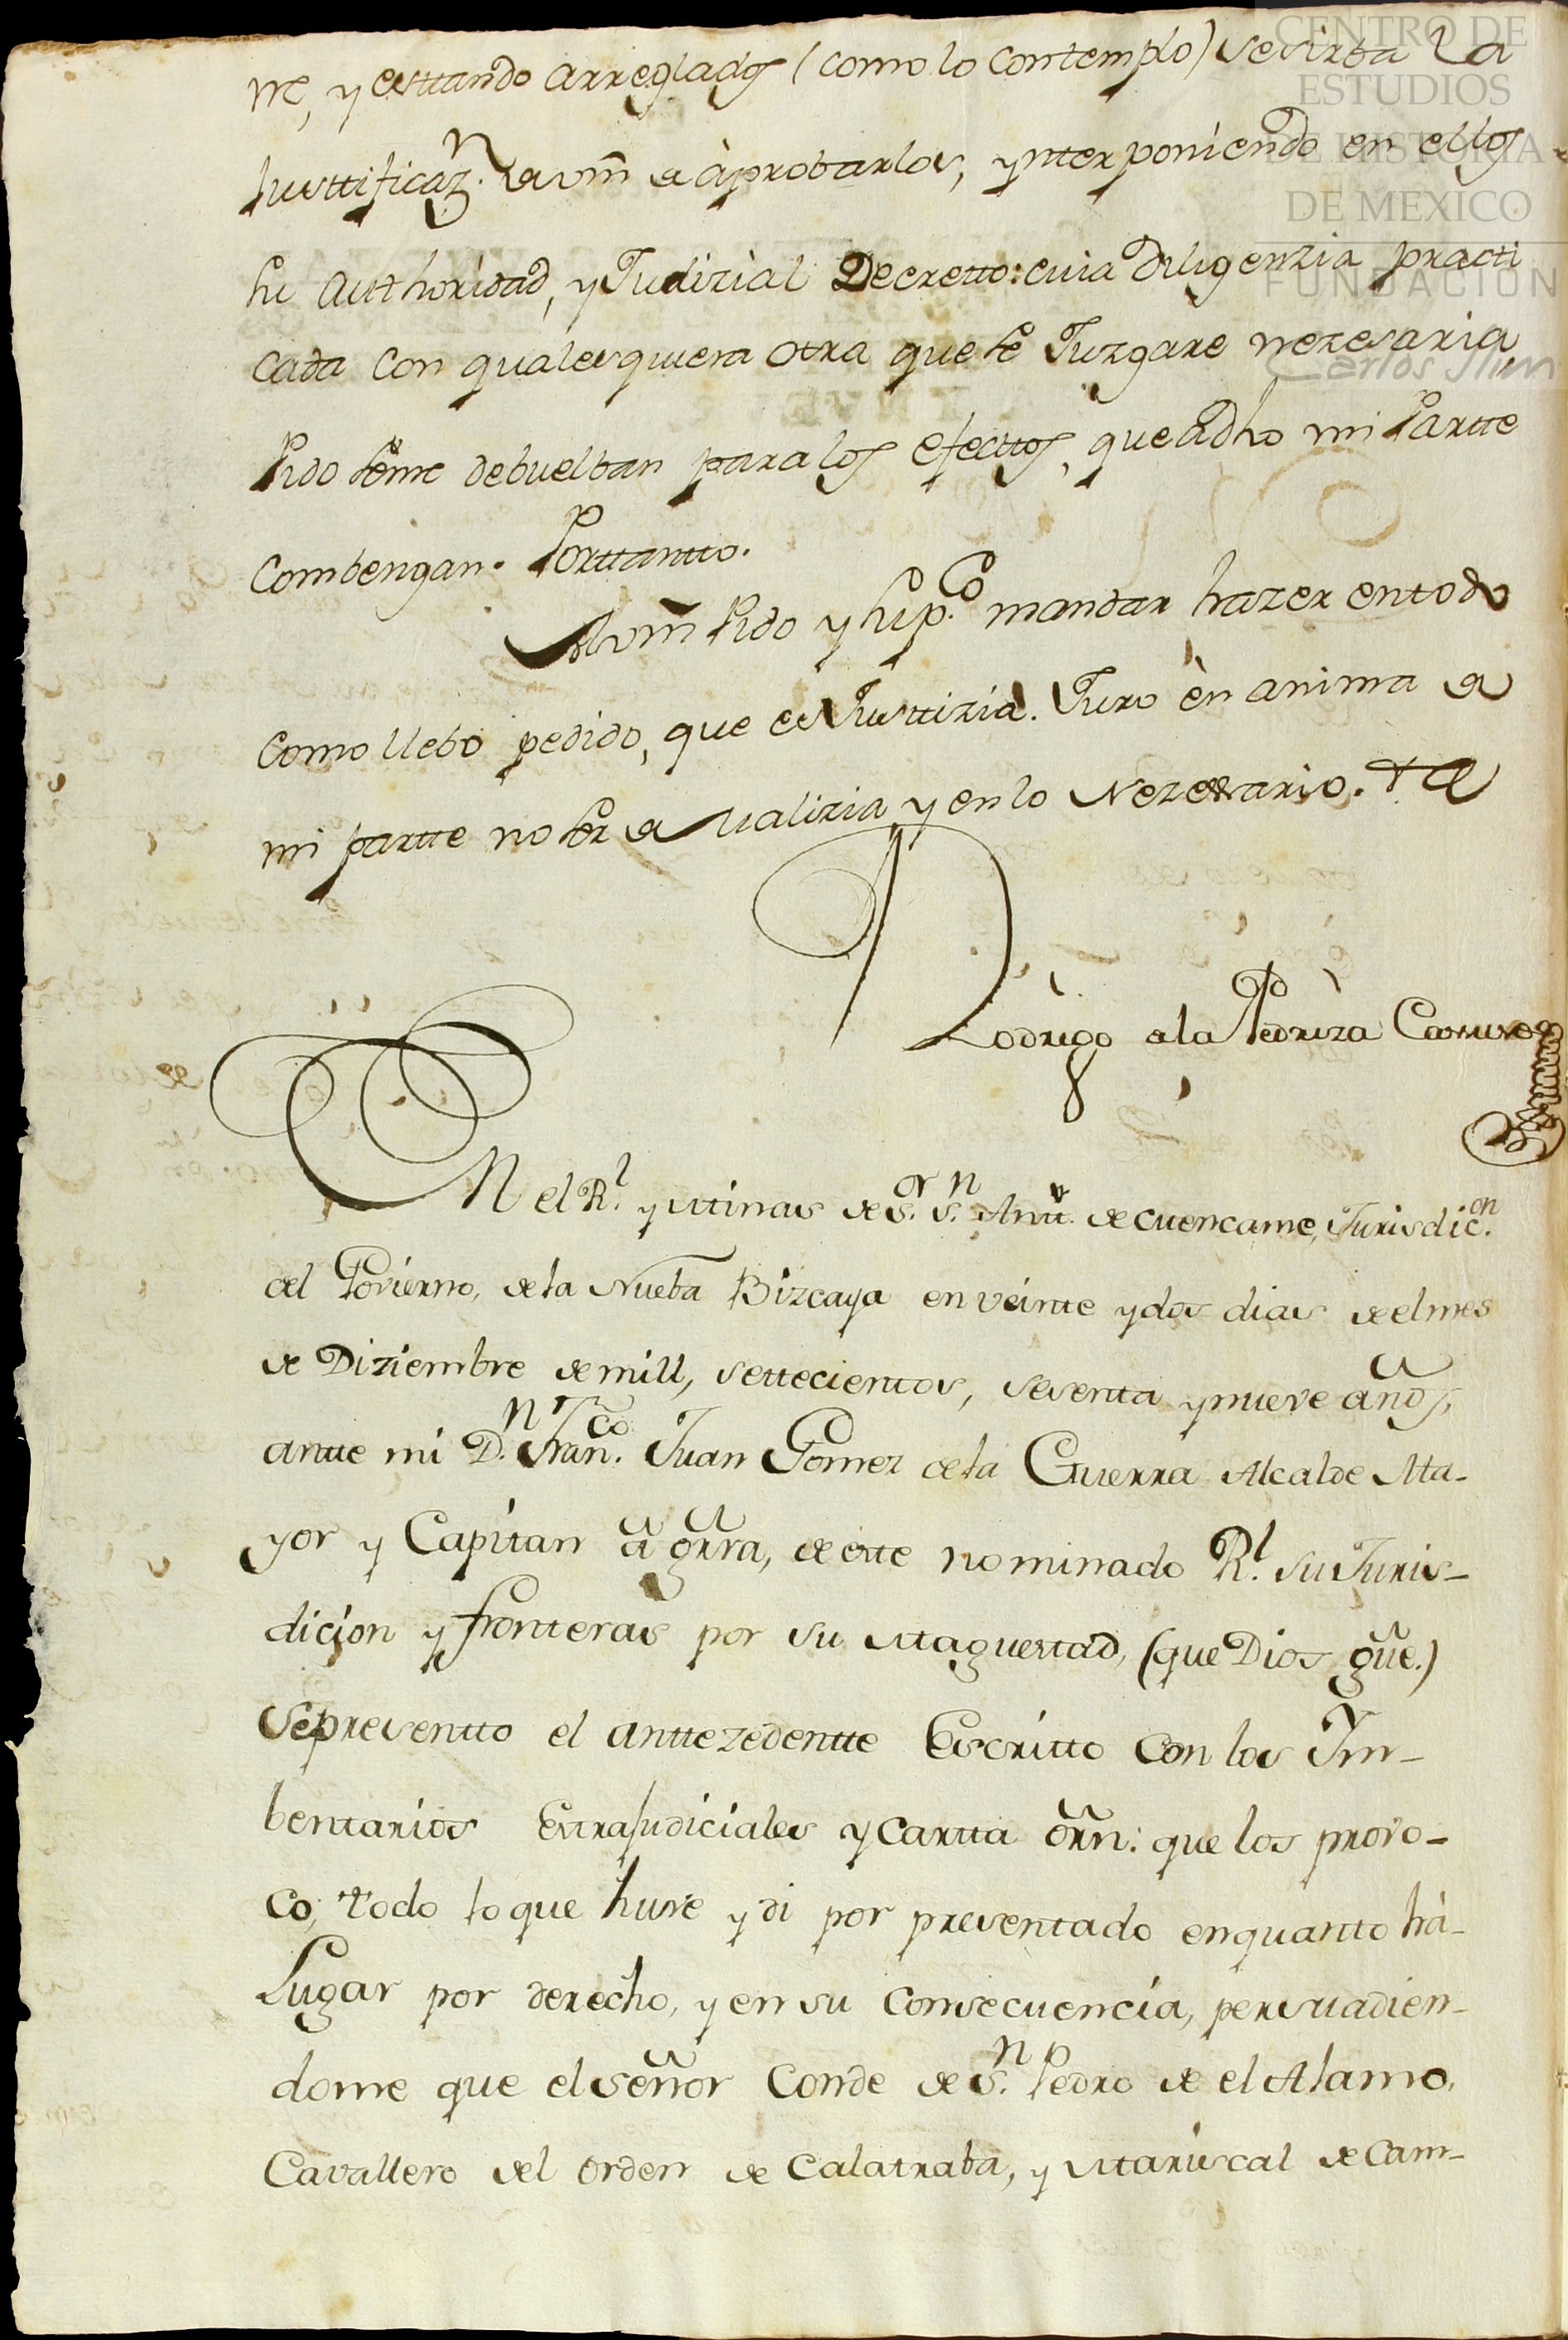 CENTRO DE
ESTUDIOS
DE HISTORIA
DE MEXICO
FUNDACION
Carlos Slim
ne, y esttando arreglados (como lo contemplo) se sirba la
Justificaz.n de Vm̃ de àprobarlos, ynterponiendo en ellos
su authoridad, y Judizial Decretto: cuia Diligenzia practi
cada con qualesquiera otra que se Juzgare nezesaria,
Pido se me debuelban para los efecttos, que a dho mi Partte
combengan. Porttantto.
A Vm̃ Pido y sup.co mandar hazer en todo
como llebo pedido, que es Justtizia. Juro èn anima de
mi partte no ser de malizia y en lo Nezesario. &a
Rodrigo de la Pedriza
EN el R.l y Minas de S.or S.n Antt. de Cuencame, Jurisdic.on
del Govierno, de la Nueba Bizcaya en veinte y dos dias de el mes
de Diziembre de mill, settecientos, sesenta y nueve años,
antte mi D.n Fran.co Juan Gomez de la Guerra Alcalde Ma-
yor y Capitan à grra, de este nominado R.l su Juris-
dicion y fronteras por su Maguestad, (que Dios gũe.)
Se presentto el anttezedentte Escritto con los Ym-
bentarios Extrajudiciales y Cartta õrn: que los provo-
co; todo lo que huve y di por presentado en quanto hà-
Lugar por derecho, y en su consecuencia, persuadien-
dome que el señor Conde de S.n Pedro de el Alamo,
Cavallero del orden de Calatraba, y Mariscal de Cam-